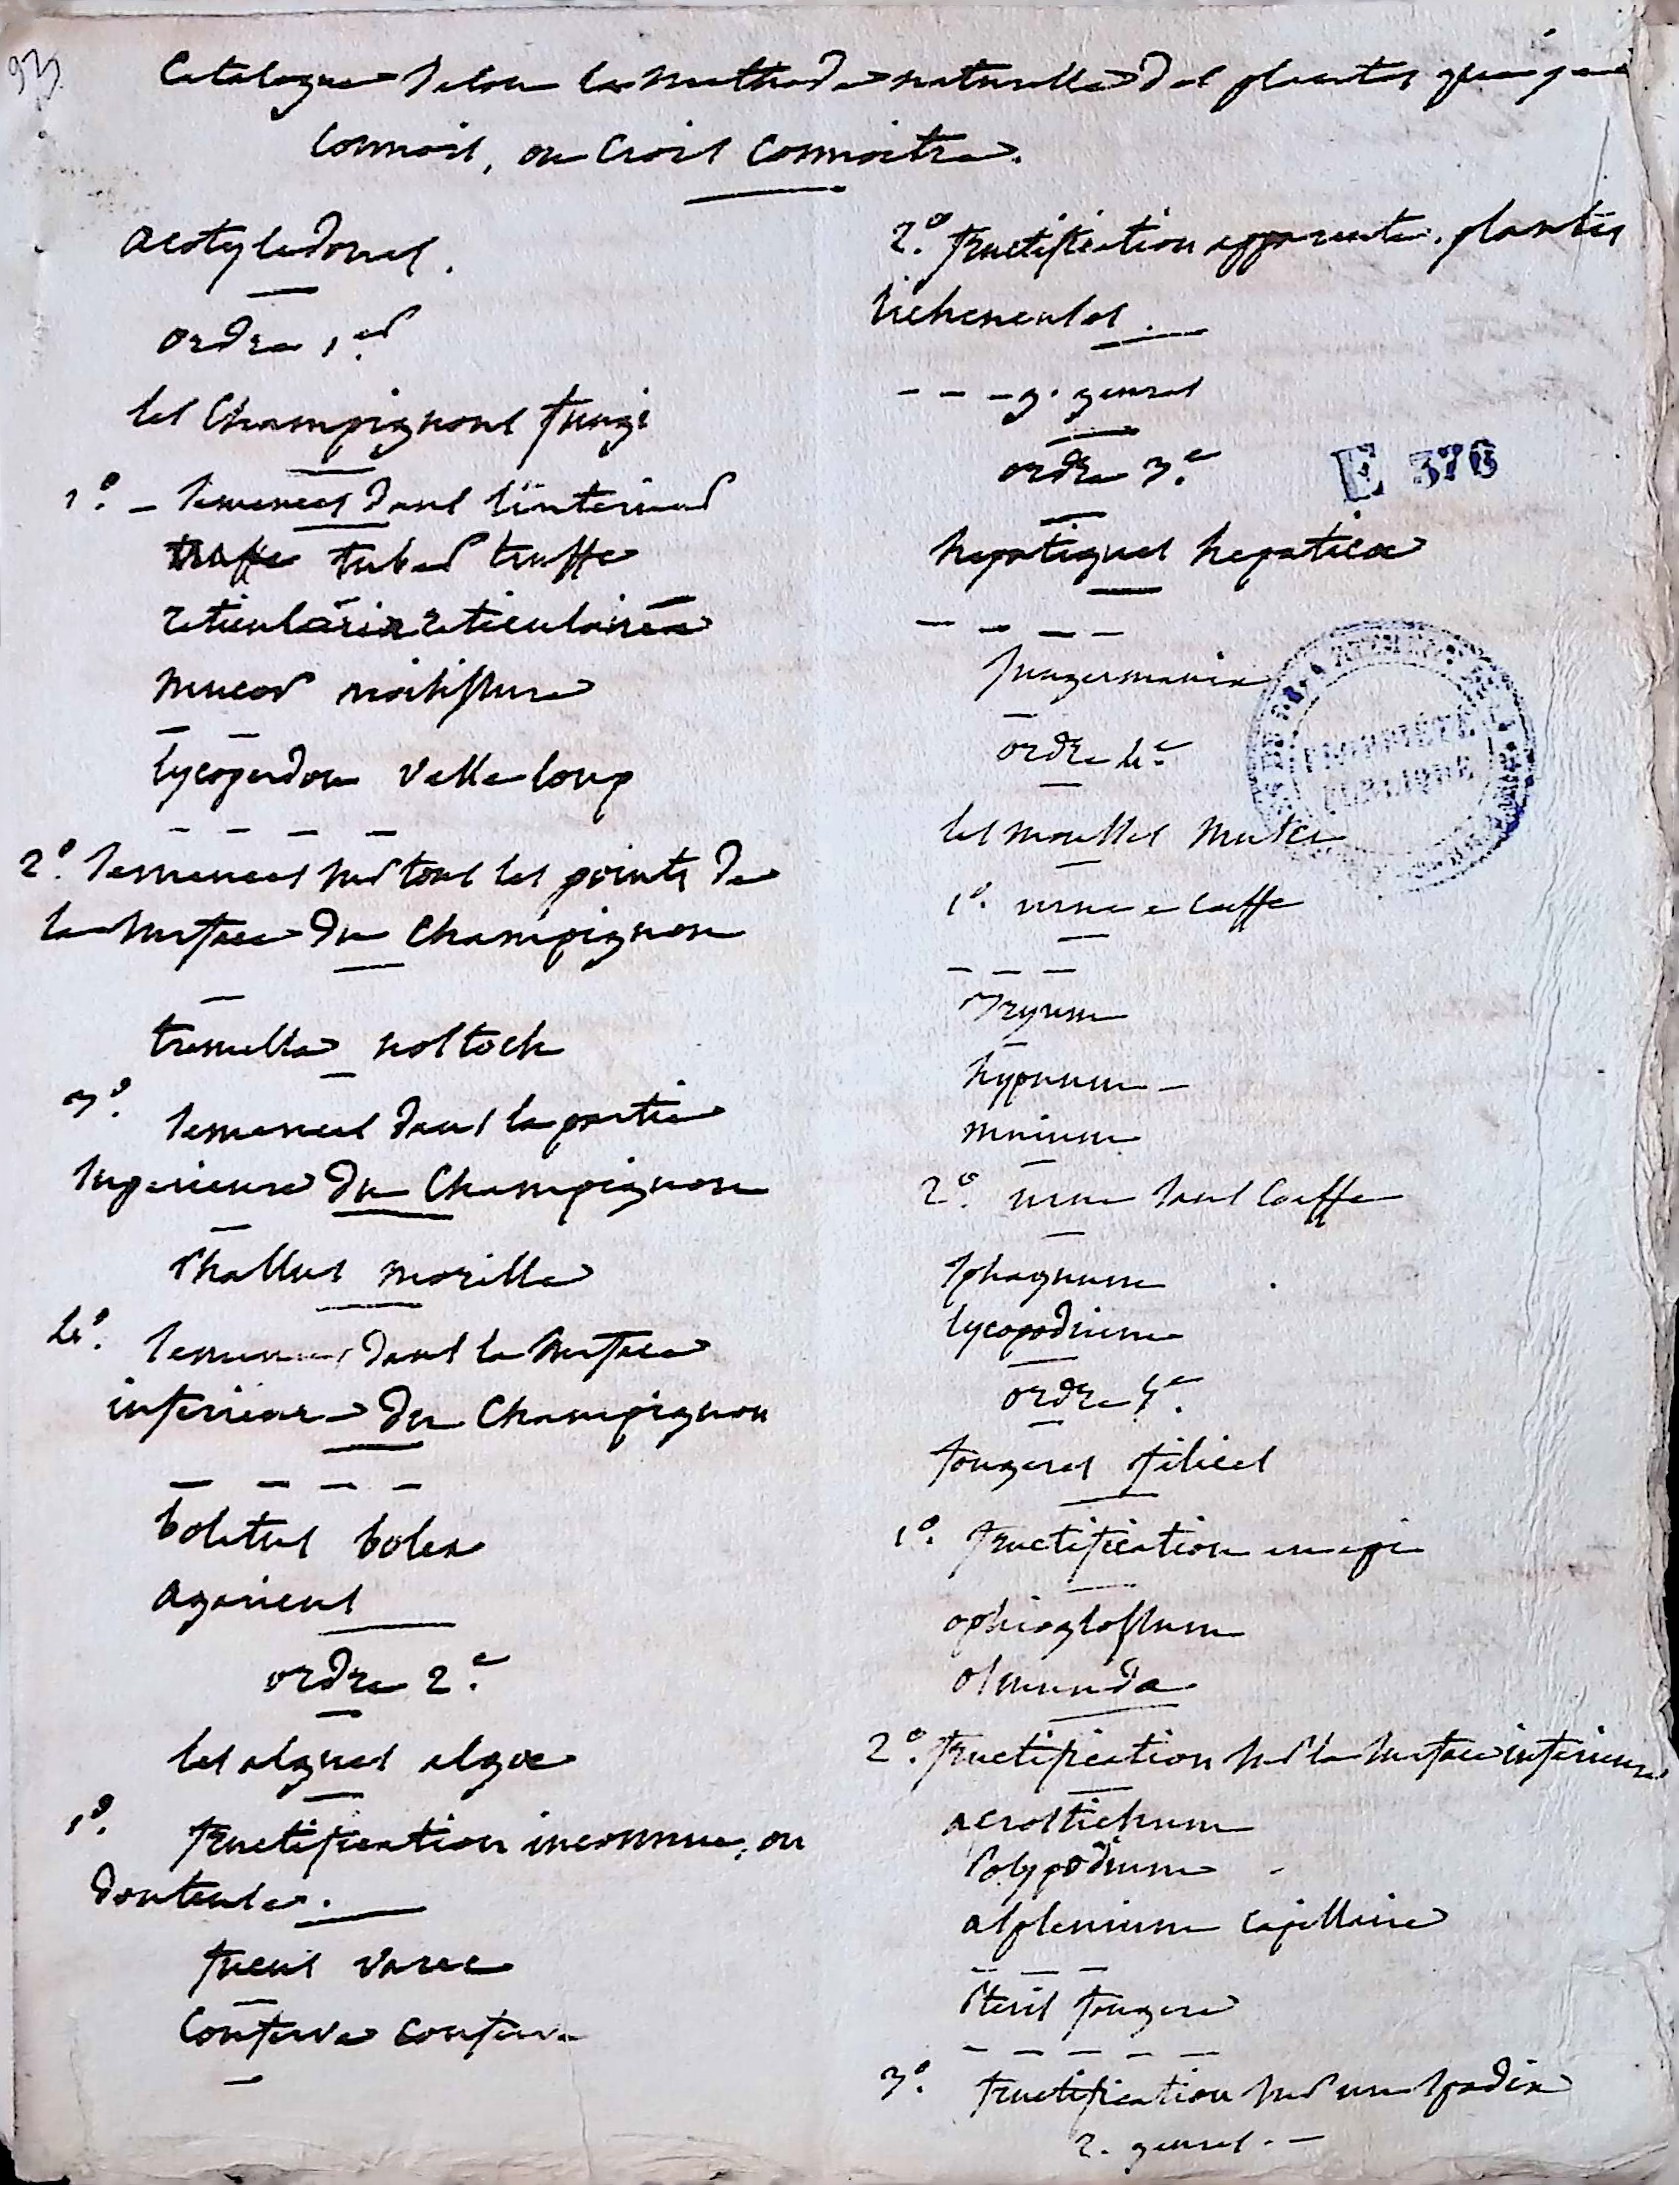 93
Catalogue selon la methode naturelle des plantes que je
connois, ou crois connoitre.
acotyledones.
ordre 1er.
les champignons fungi
1º. – semences dans l'interieur
truffe tuber truffe
reticularia reticulaire
mucor moisissure
lycoperdon vesse loup
2º. semences sur tous les points de
la surface du champignon
tremella nostoch
3º. semences dans la partie
superieure du champignon
phallus morille
4º. semences dans la surface
inferieure du champignon
boletus bolet
agaricus
ordre 2e.
les algues algæ
1º. fructification inconnue, ou
douteuse.
fucus varec
conferva conferve
2º. fructification apparente. plantes
licheneuses.
– – – 9. genres
ordre 3e.
E 376
hepatiques hepaticæ
jungermania
PROPRIÉTÉ
PUBLIQUE
ordre 4e.
les mousses musci
1º. urne a coeffe
bryum
hypnum –
mnium
2º. urne sans coeffe
sphagnum
lycopodium
ordre 5e.
fougeres filices
1º. fructification en epi
ophioglossum
osmunda
2º. fructification sur la surface inferieure
acrostichum
polypodium –
asplenium capillaire
pteris fougere
3º. fructification sur un spadix
2. genres. –